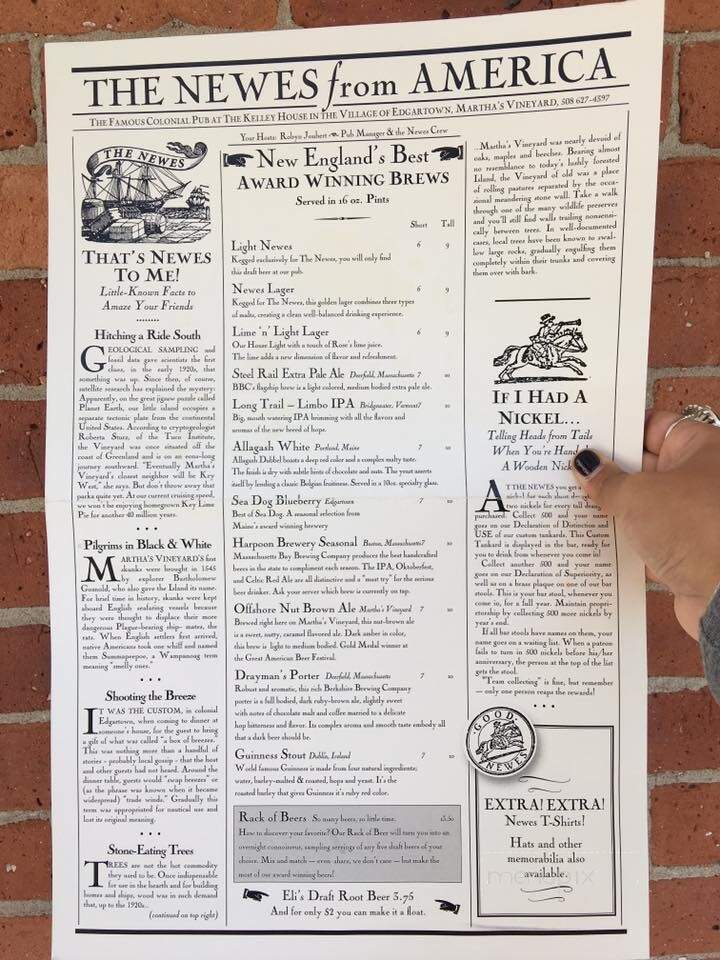 THE NEWES from AMERICA
THE FAMOUS COLONIAL PUB AT THE KELLEY HOUSE IN THE VILLAGE OF EDGARTOWN, MARTHA'S VINEYARD, 508 627-4397
Your Hosts: Robyn Joubert Pub Manager & the Newes Crew
THE NEWES
THAT'S NEWES
TO ME!
Little-Known Facts to
Amaze Your Friends
Hitching a Ride South
GEOLOGICAL SAMPLING and
fossil data gave scientists the first
clues, in the early 1920s, that
something was up. Since then, of course,
satellite research has explained the mystery:
Apparently, on the great jigsaw puzzle called
Planet Earth, our little island occupies a
separate tectonic plate from the continental
United States. According to cryptogeologist
Roberta Sturz, of the Tuco Institute,
the Vineyard was once situated off the
coast of Greenland and is on an eons-long
journey southward. "Eventually Martha's
Vineyard's closest neighbor will be Key
West," she says. But don't throw away that
parka quite yet. At our current cruising speed,
we won't be enjoying homegrown Key Lime
Pie for another 40 million years.
Pilgrims in Black & White
MARTHA'S VINEYARD'S first
skunks were brought in 1545
by explorer Bartholomew
Gosnold, who also gave the Island its name.
For brief time in history, skunks were kept
aboard English seafaring vessels because
they were thought to displace their more
dangerous Plague-bearing ship- mates, the
rats. When English settlers first arrived,
native Americans took one whiff and named
them Summapeepoo, a Wampanoag term
meaning "smelly ones."
Shooting the Breeze
IT WAS THE CUSTOM, in colonial
Edgartown, when coming to dinner at
someone's house, for the guest to bring
a gift of what was called "a box of breezes."
This was nothing more than a handful of
stories - probably local gossip - that the host
and other guests had not heard. Around the
dinner table, guests would "swap breezes" or
(as the phrase was known when it became
widespread) "trade winds." Gradually this
term was appropriated for nautical use and
lost its original meaning.
Stone-Eating Trees
TREES are not the hot commodity
they used to be. Once indispensable
for use in the hearth and for building
homes and ships, wood was in such demand
that, up to the 1920s..
(continued on top right)
New England's Best
AWARD WINNING BREWS
Served in 16 oz. Pints
Short Tall
Light Newes 6 9
Kegged exclusively for The Newes, you will only find
this draft beer at our pub.
Newes Lager 6 9
Kegged for The Newes, this golden lager combines three types
of malts, creating a clean well-balanced drinking experience.
Lime 'n' Light Lager 6 9
Our House Light with a touch of Rose's lime juice.
The lime adds a new dimension of flavor and refreshment.
Steel Rail Extra Pale Ale Deerfield, Massachusetts 7 10
BBC's flagship brew is a light colored, medium bodied extra pale ale.
Long Trail – Limbo IPA Bridgewater, Vermont 7 10
Big, mouth watering IPA brimming with all the flavors and
aromas of the new breed of hops.
Allagash White Portland, Maine 7 10
Allagash Dubbel boasts a deep red color and a complex malty taste.
The finish is dry with subtle hints of chocolate and nuts. The yeast asserts
itself by lending a classic Belgian fruitiness. Served in a 10oz. specialty glass.
Sea Dog Blueberry Edgartown 7 10
Best of Sea Dog. A seasonal selection from
Maine's award winning brewery
Harpoon Brewery Seasonal Boston, Massachusetts 7 10
Massachusetts Bay Brewing Company produces the best handcrafted
beers in the state to compliment each season. The IPA, Oktoberfest,
and Celtic Red Ale are all distinctive and a "must try" for the serious
beer drinker. Ask your server which brew is currently on tap.
Offshore Nut Brown Ale Martha's Vineyard 7 10
Brewed right here on Martha's Vineyard, this nut-brown ale
is a sweet, nutty, caramel flavored ale. Dark amber in color,
this brew is light to medium bodied. Gold Medal winner at
the Great American Beer Festival.
Drayman's Porter Deerfield, Massachusetts 7 10
Robust and aromatic, this rich Berkshire Brewing Company
porter is a full bodied, dark ruby-brown ale, slightly sweet
with notes of chocolate malt and coffee married to a delicate
hop bitterness and flavor. Its complex aroma and smooth taste embody all
that a dark beer should be.
Guinness Stout Dublin, Ireland 7 10
World famous Guinness is made from four natural ingredients;
water, barley-malted & roasted, hops and yeast. It's the
roasted barley that gives Guinness it's ruby red color.
Rack of Beers So many beers, so little time. 13.50
How to discover your favorite? Our Rack of Beer will turn you into an
overnight connoisseur, sampling servings of any five draft beers of your
choice. Mix and match – even share, we don't care – but make the
most of our award winning beers!
Eli's Draft Root Beer 3.75
And for only $2 you can make it a float.
...Martha's Vineyard was nearly devoid of
oaks, maples and beeches. Bearing almost
no resemblance to today's lushly forested
Island, the Vineyard of old was a place
of rolling pastures separated by the occa-
sional meandering stone wall. Take a walk
through one of the many wildlife preserves
and you'll still find walls trailing nonsensi-
cally between trees. In well-documented
cases, local trees have been known to swal-
low large rocks, gradually engulfing them
completely within their trunks and covering
them over with bark.
IF I HAD A
NICKEL...
Telling Heads from Tails
When You're Hand
A Wooden Nick
AT THE NEWES you get a
nickel for each short
two nickels for every tall
purchased. Collect 500 and your name
goes on our Declaration of Distinction and
USE of our custom tankards. This Custom
Tankard is displayed in the bar, ready for
you to drink from whenever you come in!
Collect another 500 and your name
goes on our Declaration of Superiority, as
well as on a brass plaque on one of our bar
stools. This is your bar stool, whenever you
come in, for a full year. Maintain propri-
etorship by collecting 500 more nickels by
year's end.
If all bar stools have names on them, your
name goes on a waiting list. When a patron
fails to turn in 500 nickels before his/her
anniversary, the person at the top of the list
gets the stool.
"Team collecting" is fine, but remember
— only one person reaps the rewards!
GOOD
NEWES
EXTRA! EXTRA!
Newes T-Shirts!
Hats and other
memorabilia also
available.
menupix